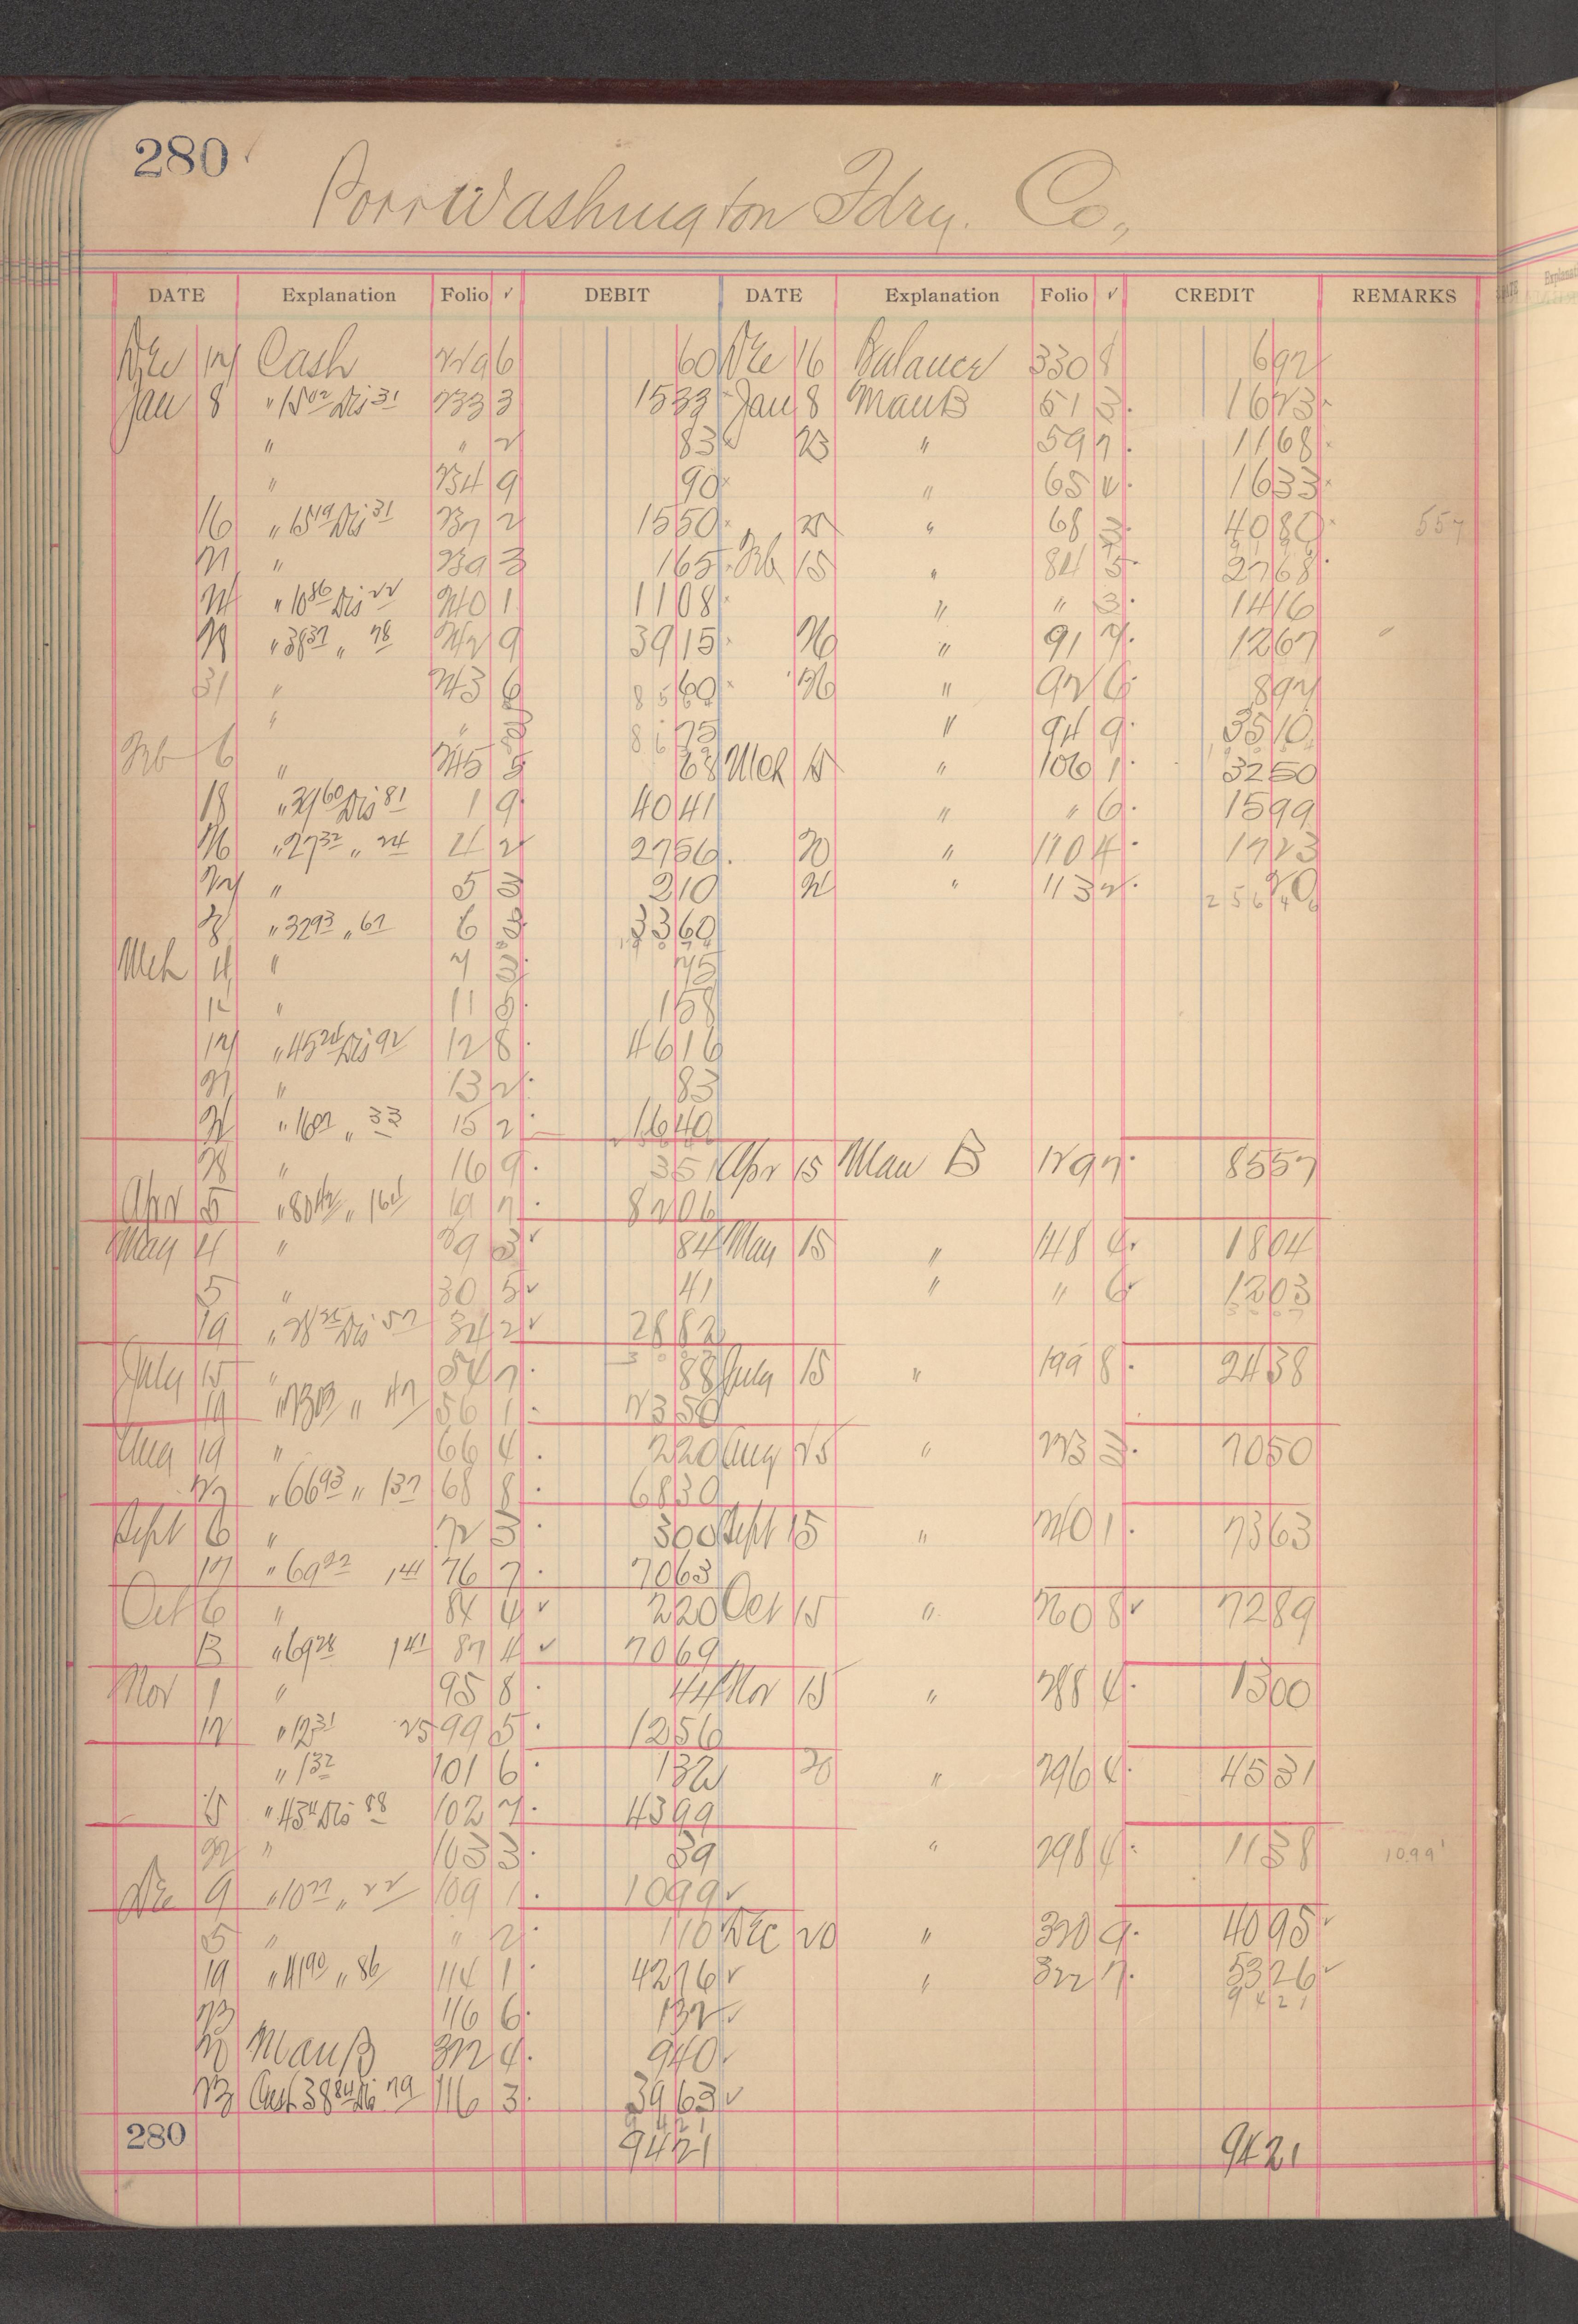 280
Port Washington Fdry. Co,
DATE Explanation Folio ✓ DEBIT DATE Explanation Folio ✓ CREDIT REMARKS
Dec 14 Cash 229 6 60 Dec 16 Balance 330 8 692
Jan 8 " 15 02 Dis 31 233 3 1533 Jan 8 Man B 51 3 1623
" " 2 83 23 " 59 7 1168
" 234 9 90 " 65 4 1633
16 " 15 19 Dis 31 237 2 1550 25 " 68 3 4080 557
21 " 239 3 165 Feb 15 " 84 5 2768
24 " 10 86 Dis 22 240 1 1108 " " 3 1416
28 " 38 37 " 78 242 9 3915 20 " 91 7 1267
31 " 243 6 8560 26 " 92 6 892
" " 75 " 94 9 3510
Feb 6 " 245 5 68 Mch 15 " 106 1 3250
18 " 39 60 Dis 81 1 9 4041 " " 6 1599
26 " 27 32 " 24 4 2 2756 20 " 110 4 1723
27 " 5 3 210 " 113 2 20
25646
28 " 32 93 " 67 6 3360
Mch 4 " 7 3 75
12 " 11 158
17 " 45 24 Dis 92 12 8 4616
21 " 13 2 83
24 " 16 07 " 33 15 2 1640
28 " 16 9 351 Apr 15 Man B 129 7 8557
Apr 5 " 80 42 " 164 19 7 8206
May 4 " 29 3 84 May 15 " 148 4 1804
5 " 30 5 41 " " 6 1203
19 " 28 25 Dis 57 34 2 2882
July 15 " 54 7 88 July 15 " 199 8 2438
19 " 23 03 " 47 56 1 2350
Aug 19 " 66 4 220 Aug 25 " 223 3 7050
27 " 66 93 " 137 68 8 6830
Sept 6 " 72 3 300 Sept 15 " 240 1 7363
17 " 69 22 141 76 7 7063
Oct 6 " 84 4 220 Oct 15 " 260 8 7289
13 " 69 28 141 87 4 7069
Nov 1 " 95 8 44 Nov 15 " 288 4 1300
12 " 12 31 25 99 5 1256
" 1 32 101 6 132 20 " 296 4 4531
15 " 43 11 Dis 88 102 7 4399
22 " 103 3 39 " 298 4 1138 1099
Dec 9 " 10 77 " 22 109 1 1099
5 " " 2 110 Dec 20 " 320 9 4095
19 " 41 90 " 86 114 1 4276 " 322 7 5326
9421
23 116 6 132
20 Man B 322 4 940
23 Cash 38 84 Dis 79 116 3 3963
9421
280 9421 9421